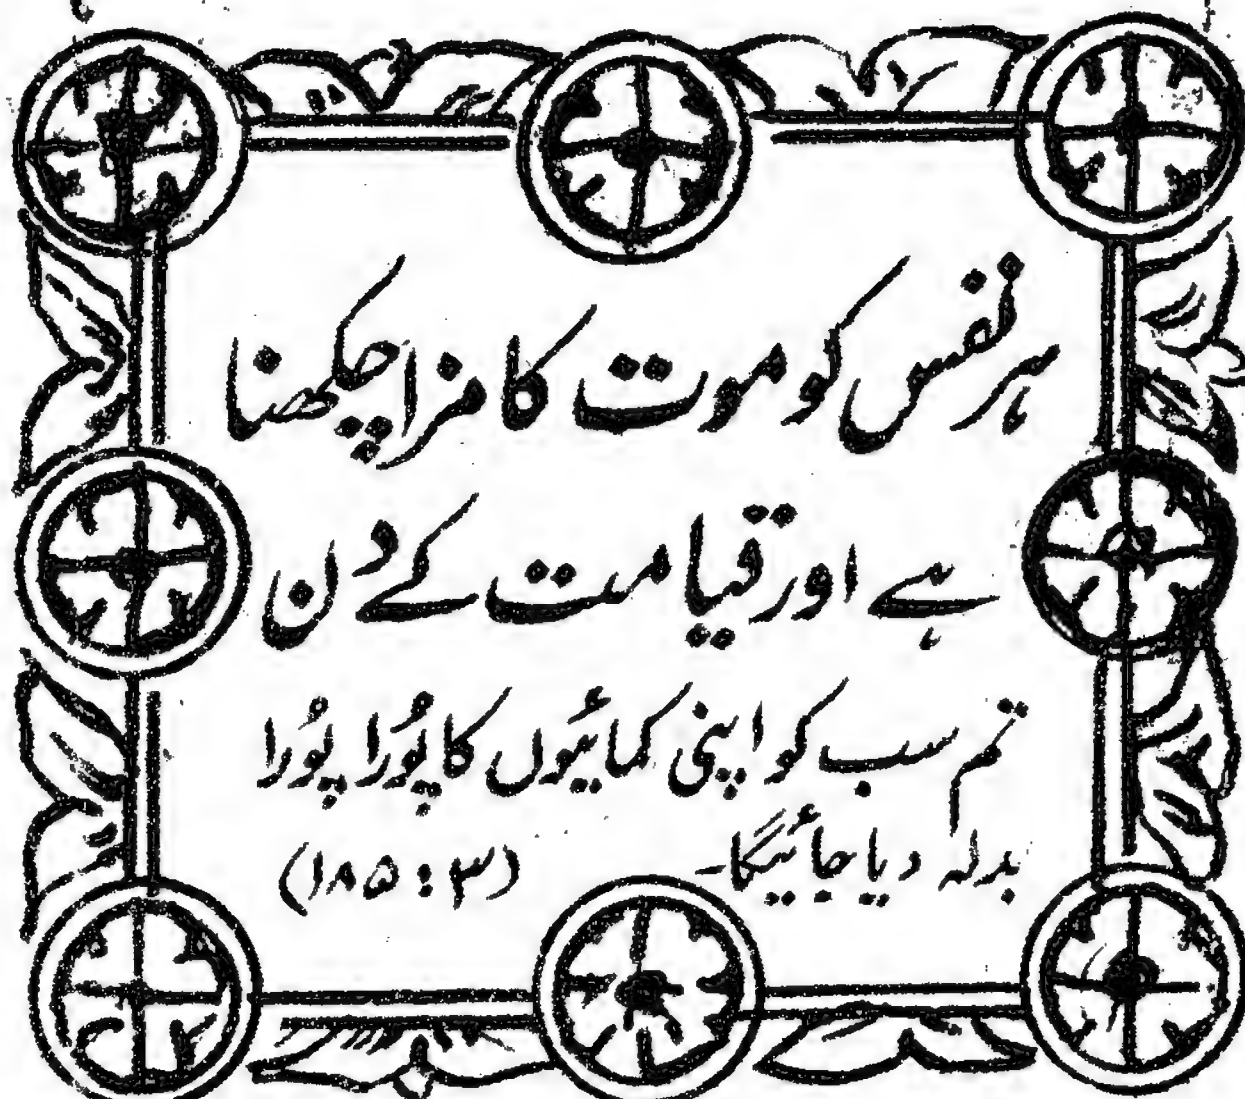 ہر نفس کو موت کا مزا چکھنا
ہے اور قیامت کے دن
تم سب کو اپنی کمائیوں کا پُورا پُورا
بدلہ دیا جائیگا۔ (۳ : ۱۸۵)